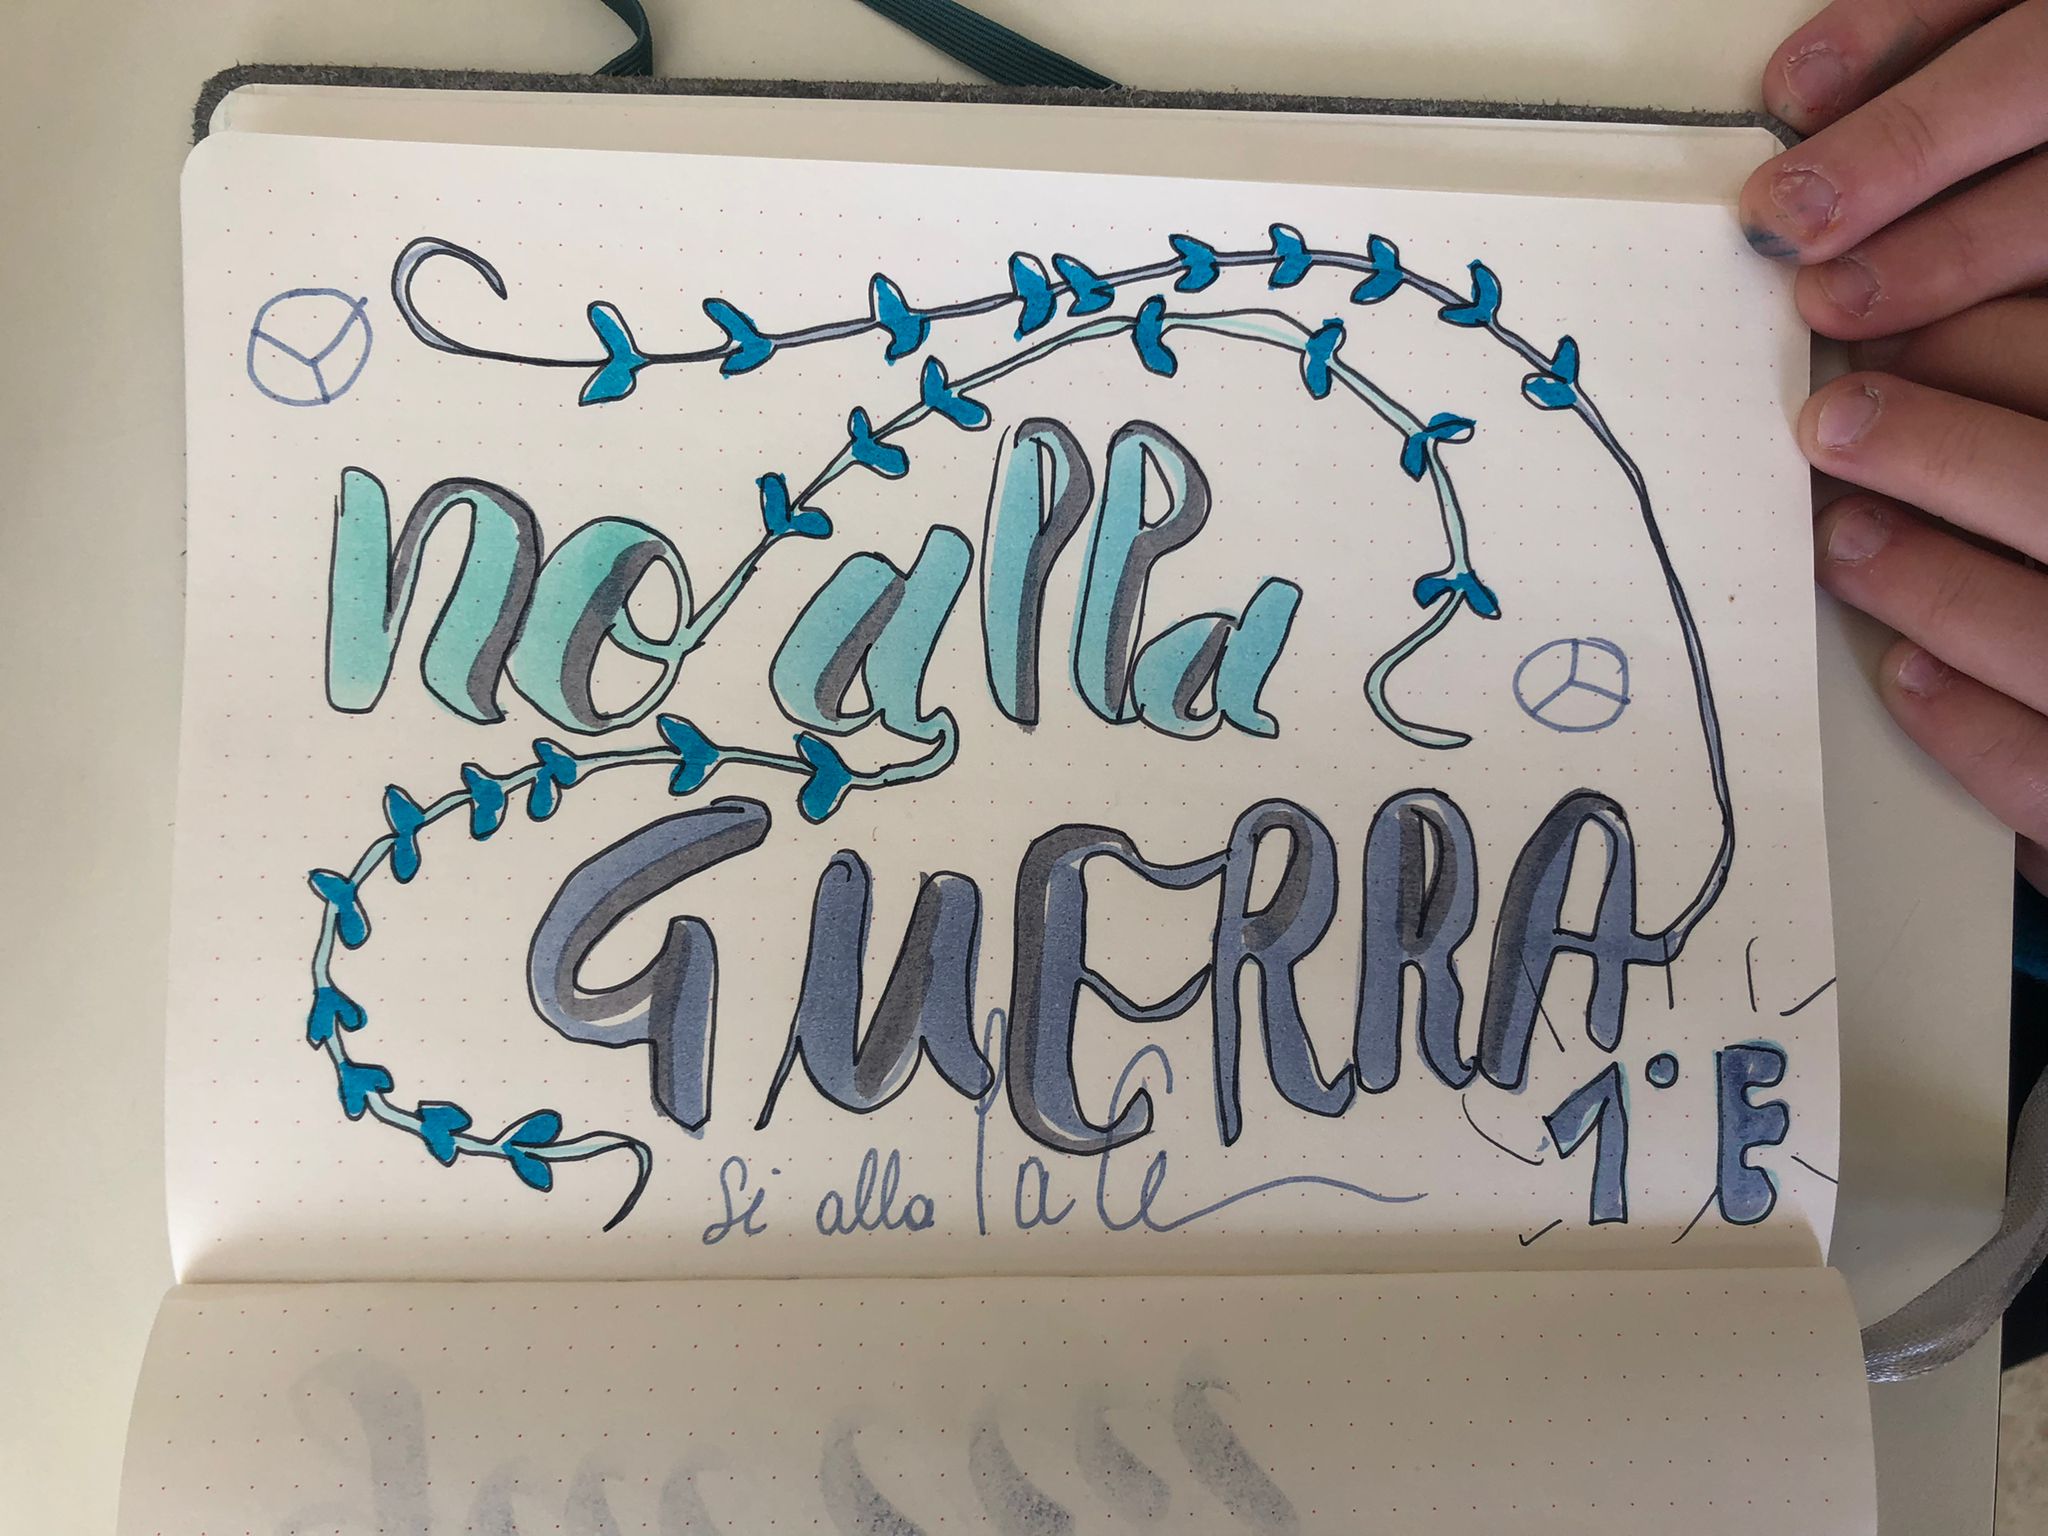 no alla
GUERRA
Si alla pace
1° E